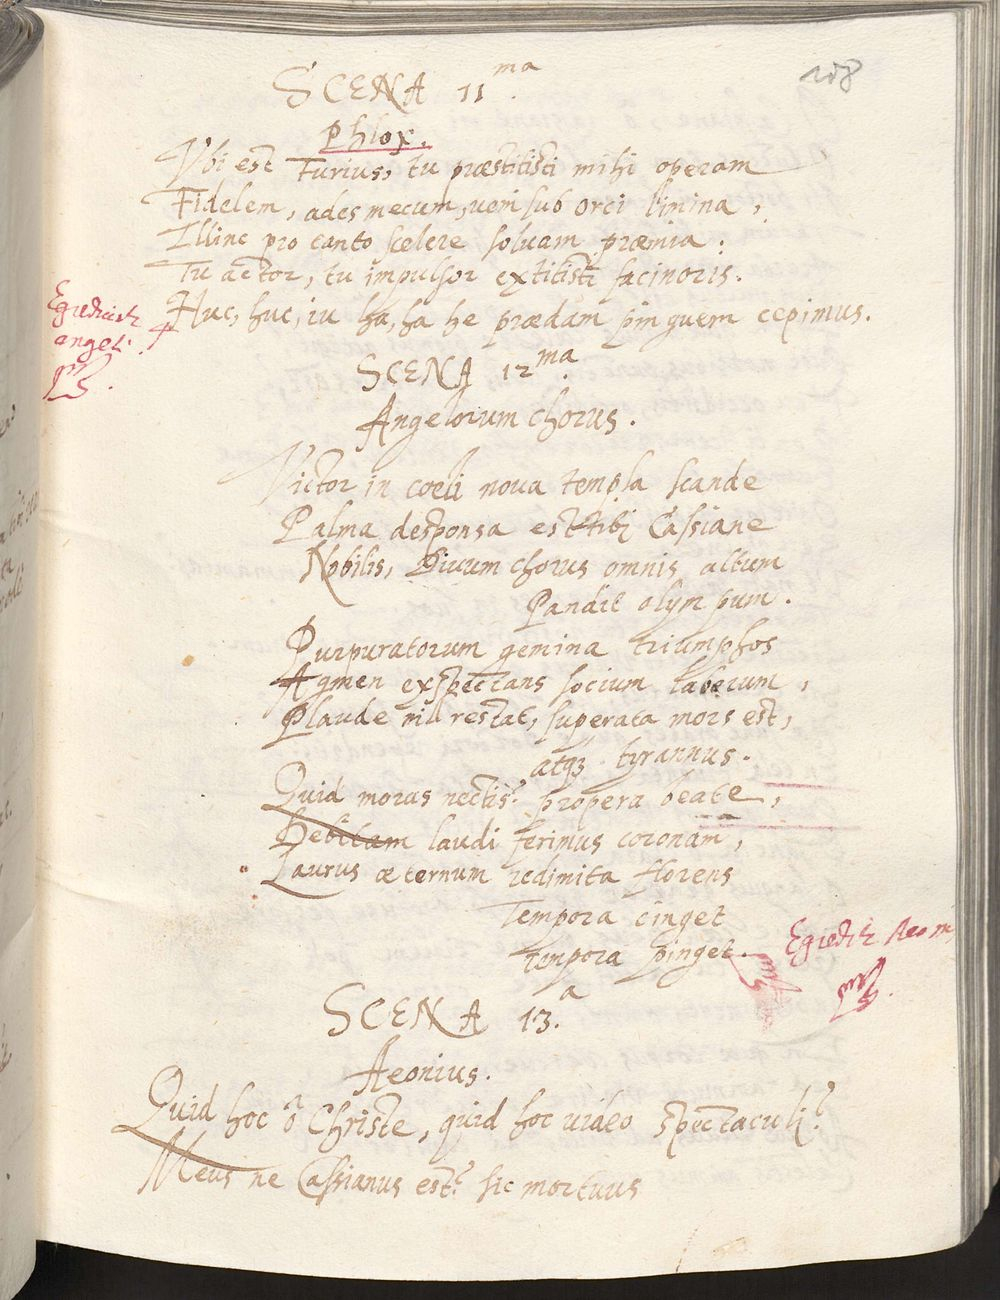 108
SCENA 11ma
Phlox.
Vbi est Furius, tu præstitisti mihi operam
Fidelem, ades mecum, veni sub orci limina,
Illinc pro tanto scelere soluam præmia.
Tu actor, tu impulsor extitisti facinoris.
Huc, huc, iu ha, ha he prædam pinguem cepimus.
angel.
SCENA 12ma
Angelorum chorus.
Victor in coeli noua templa scande
Palma desponsa est tibi Cassiane
Nobilis, Diuum chorus omnis altum
Pandit olympum.
Purpuratorum gemina triumphos
Agmen exspectans socium laborum,
Plaude nil restat, superata mors est,
atq3 tyrannus.
Quid moras nectis? propera beate,
Debitam laudi ferimus coronam,
Laurus æternum redimita florens
Tempora cinget
Tempora pinget.
SCENA 13.a
Aeonius.
Quid hoc ô Christe, quid hoc video spectaculi?
Meus ne Cassianus est? sic mortuus